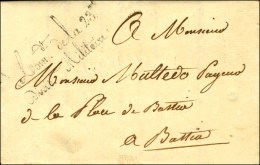 de la 23e
A Monsieur
Monsieur Maltedo Payeur
de la Place de Bastia
a Bastia